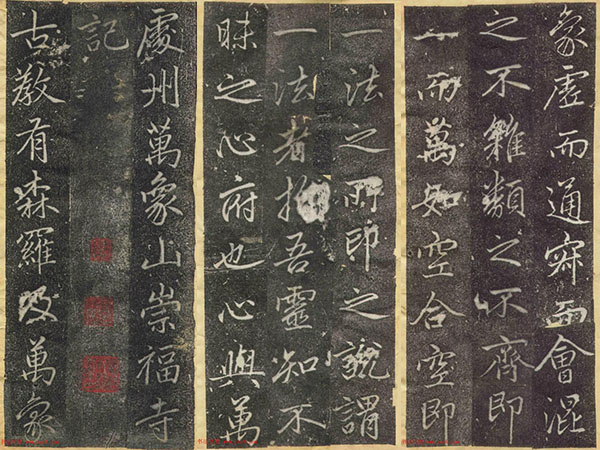 處州萬象山崇福寺
記
古教有森羅及萬象
一法之所印之說謂
一法者指吾靈知不
昧之心府也心與萬
象虛而通寂而會混
之不雜類之不齊即
一而萬如空合空即